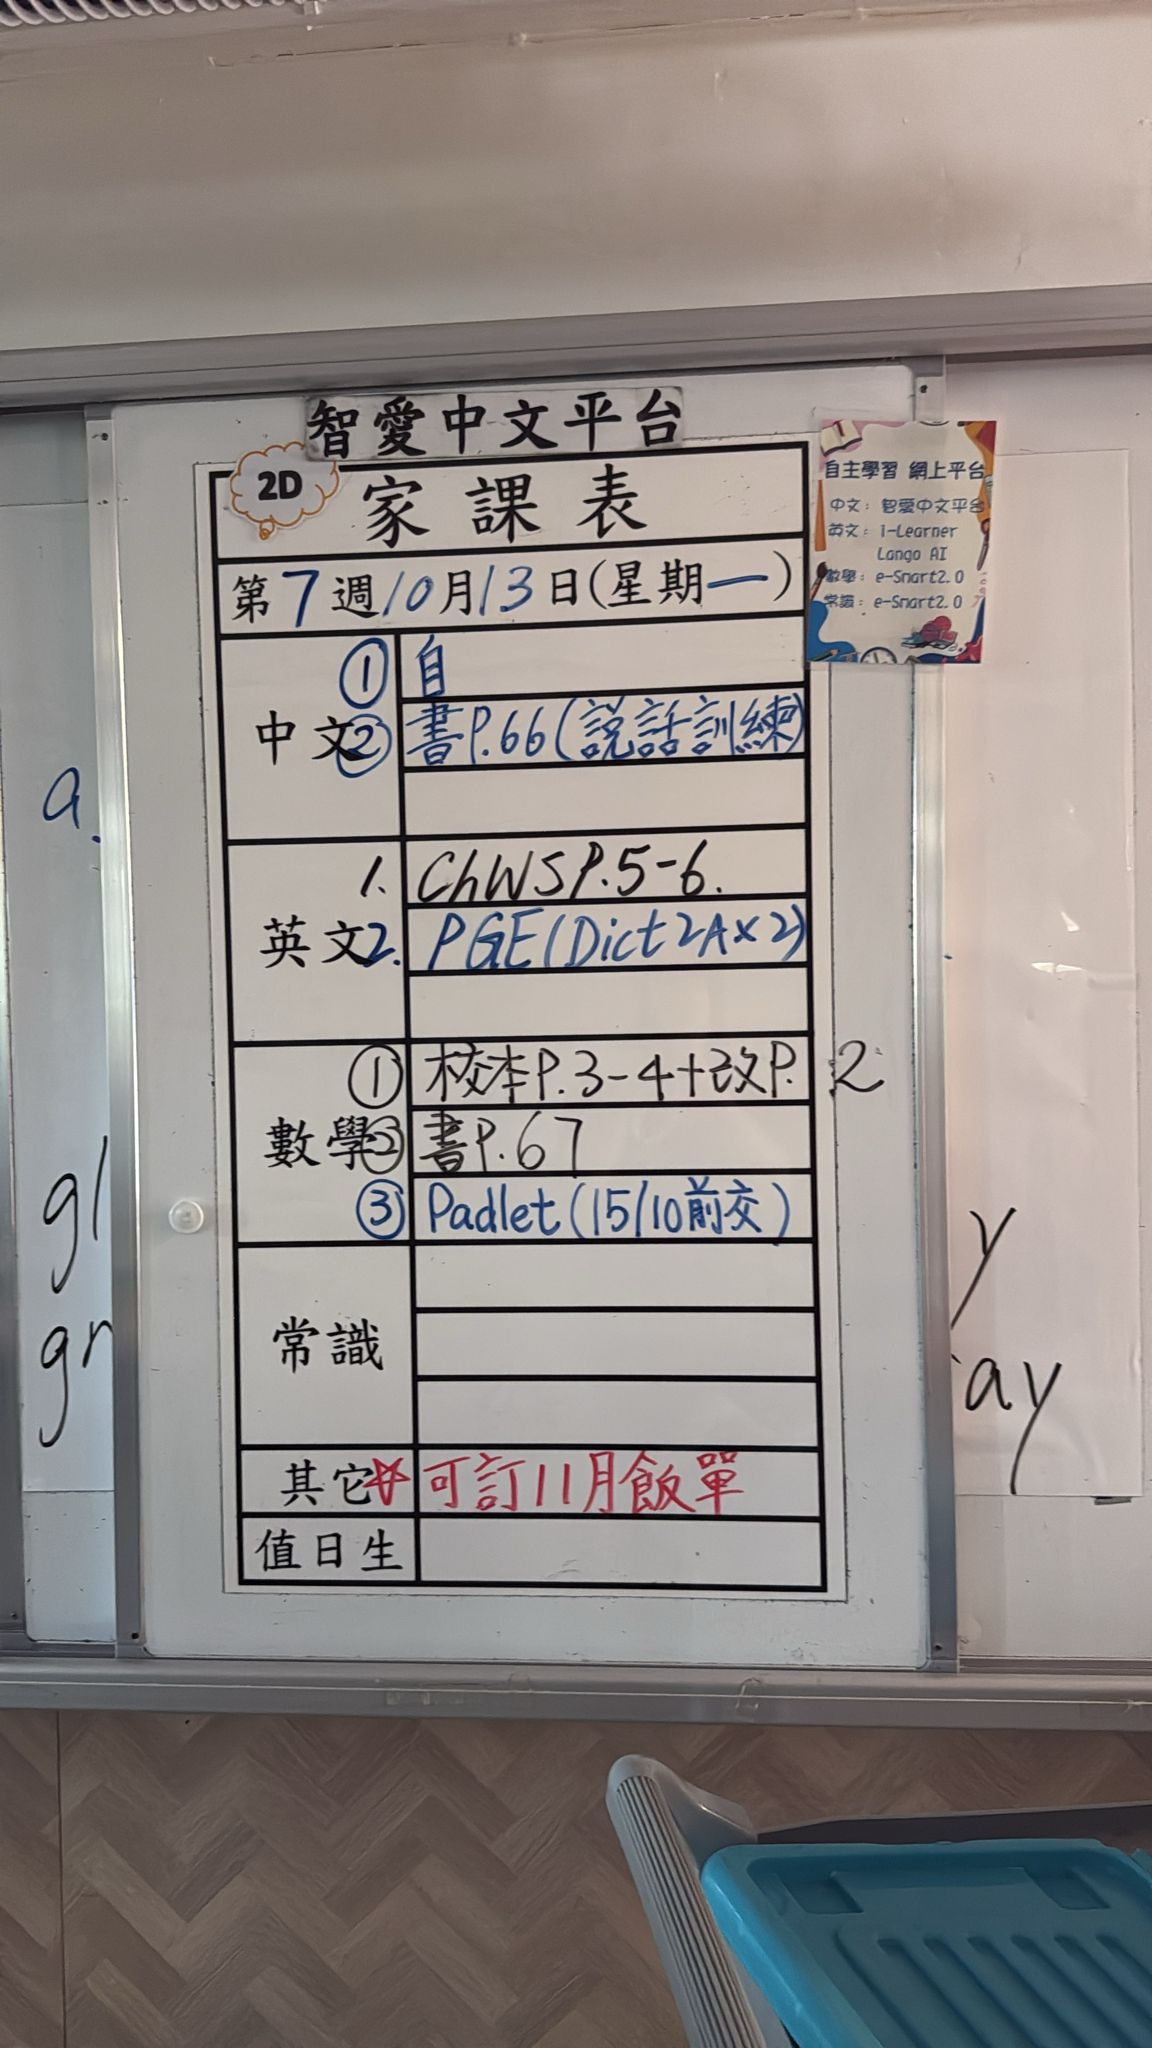 智愛中文平台
2D
家課表
第7週10月13日(星期一)
中文
① 自
② 書P.66(説話訓練)
英文
1. ChWS P.5-6.
2. PGE(Dict 2A×2)
數學
① 校本P.3-4+改P.2
② 書P.67
③ Padlet(15/10前交)
常識
其它
☆ 可訂11月飯單
值日生
自主學習 網上平台
中文：智愛中文平台
英文：i-Learner
Lango AI
數學：e-Smart2.0
常識：e-Smart2.0
a.
gl
gr
y
ay